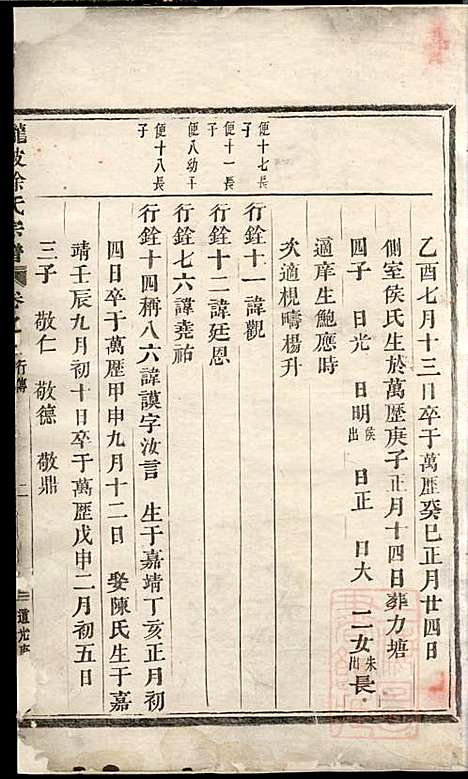 乙酉七月十三日卒于萬歷癸巳正月廿四日
側室侯氏生於萬歷庚子正月十四日葬力塘
四子 日光 日明侯出 日正 日大 二女朱出長
適庠生鮑應時
次適梘疇楊升
便十七長子
行銓十一諱觀
便十一長子
行銓十二諱廷恩
便八幼子
行銓七六諱堯祐
便十八長子
行銓十四稱八六諱謨字汝言 生于嘉靖丁亥正月初
四日卒于萬歷甲申九月十二日 娶陳氏生于嘉
靖壬辰九月初十日卒于萬歷戊申二月初五日
三子 敬仁 敬德 敬鼎
龍陂徐氏宗譜 卷之 行傳 二 道光